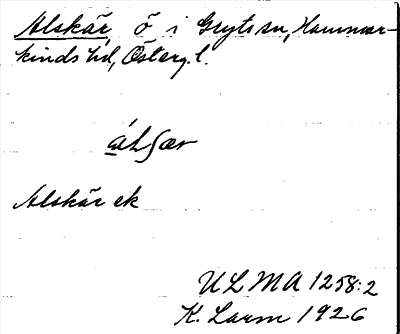 Alskär, ö i Gryts sn, Hammar-
kinds hd, Österg.l.
Alskär ek
ULMA 1258:2
K. Larm 1926